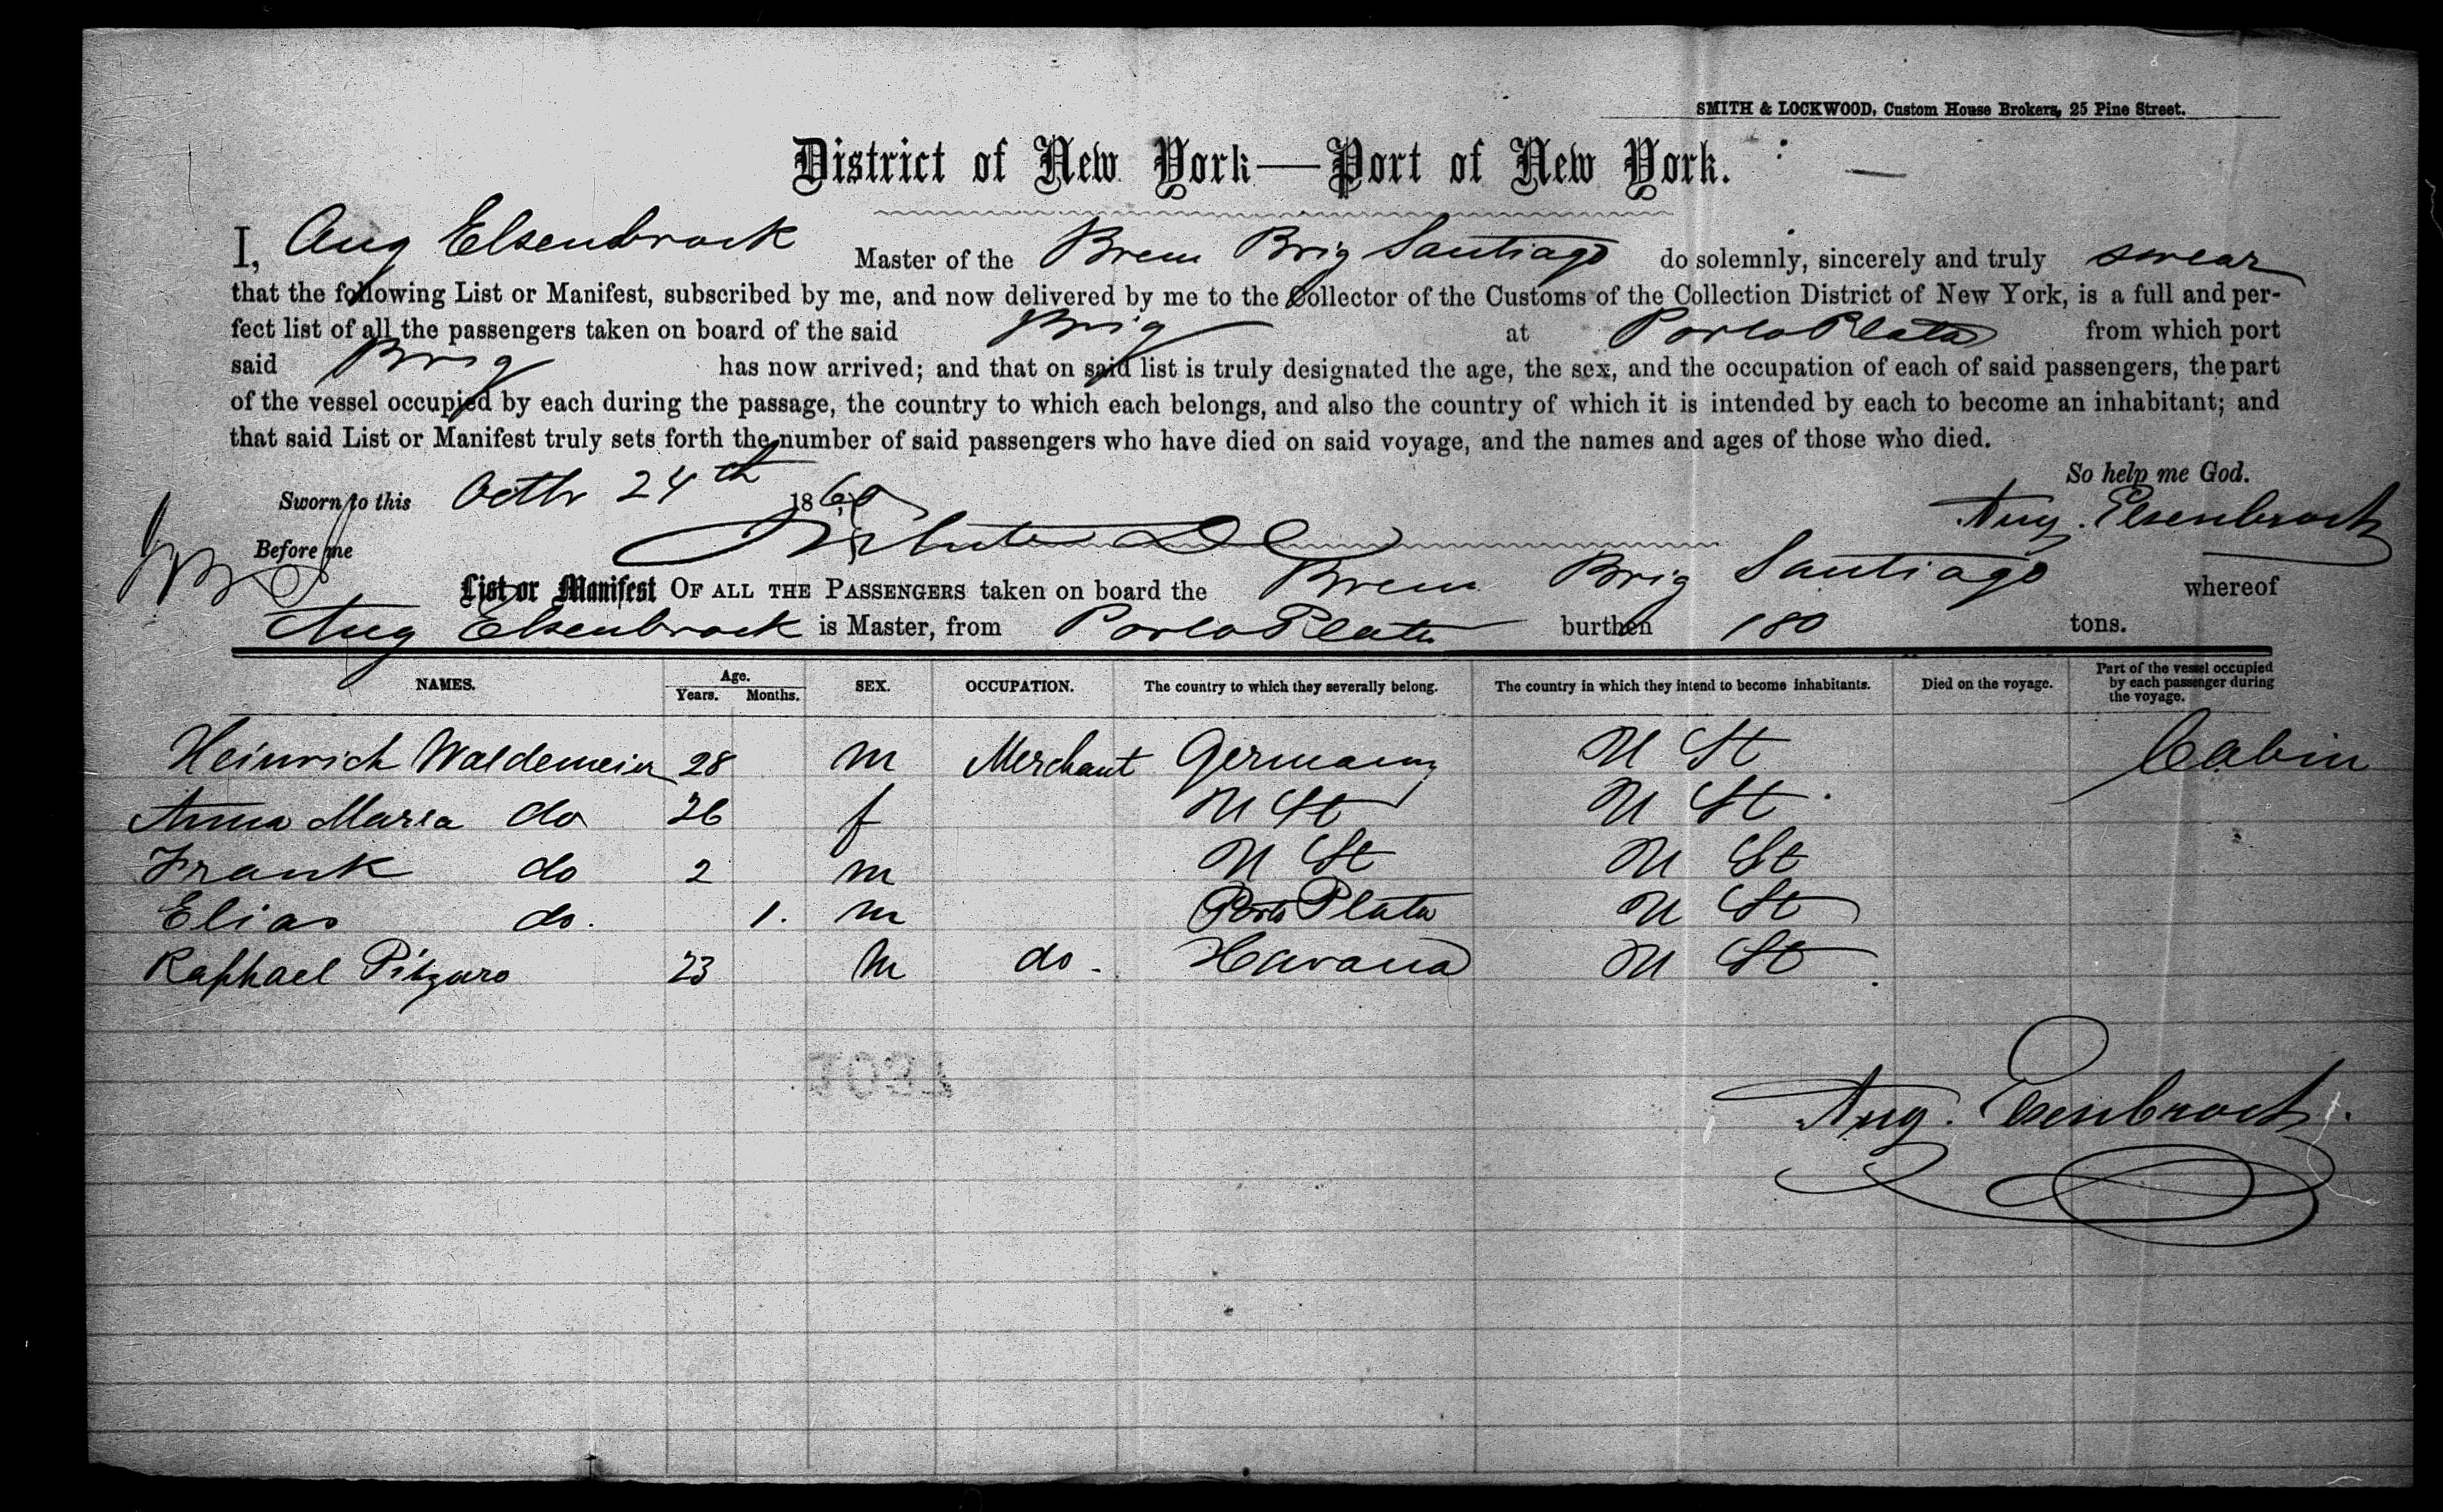 SMITH & LOCKWOOD, Custom House Brokers, 25 Pine Street.
District of New York—Port of New York.
I, Aug Elsenbrock Master of the Brem Brig Santiago do solemnly, sincerely and truly swear
that the following List or Manifest, subscribed by me, and now delivered by me to the Collector of the Customs of the Collection District of New York, is a full and per-
fect list of all the passengers taken on board of the said Brig at Porto Plata from which port
said Brig has now arrived; and that on said list is truly designated the age, the sex, and the occupation of each of said passengers, the part
of the vessel occupied by each during the passage, the country to which each belongs, and also the country of which it is intended by each to become an inhabitant; and
that said List or Manifest truly sets forth the number of said passengers who have died on said voyage, and the names and ages of those who died.
So help me God.
Sworn to this Octbr 24th 186
Aug. Elsenbrock
Before me
List or Manifest OF ALL THE PASSENGERS taken on board the Brem Brig Santiago whereof
Aug Elsenbrock is Master, from Porto Plata burthen 180 tons.
NAMES. Age. Years. Months. SEX. OCCUPATION. The country to which they severally belong. The country in which they intend to become inhabitants. Died on the voyage. Part of the vessel occupied by each passenger during the voyage.
Heinrich Waldemeier 28 m Merchant Germany U St Cabin
Anna Maria do 26 f U St U St
Frank do 2 m U St U St
Elias do. 1. m Porto Plata U St
Raphael Pitzaro 23 m do. Havana U St
Aug. Elsenbrock.